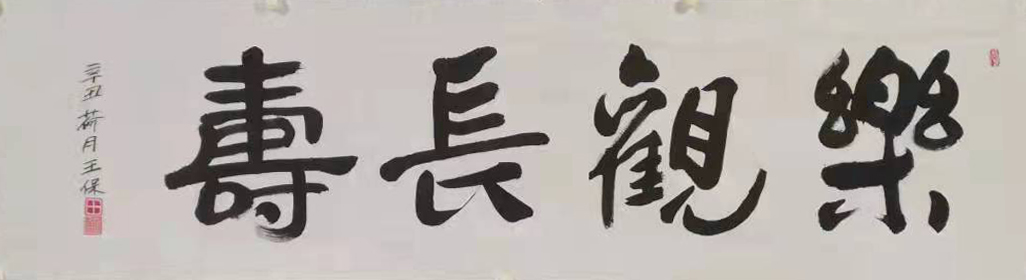 樂觀長壽
辛丑荷月王保